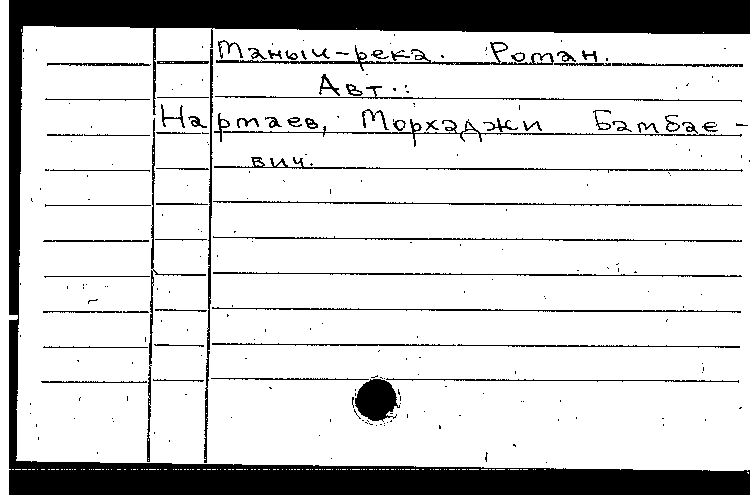 Маныч-река. Роман.
Авт.:
Нартаев, Морхаджи Бамбае-
вич.